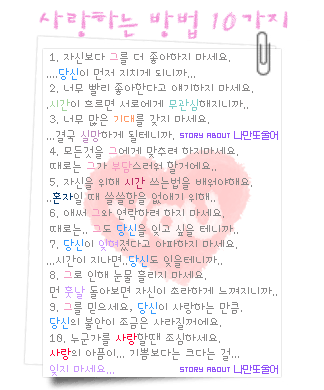 사랑하는 방법 10가지
1. 자신보다 그를 더 좋아하지 마세요.
....당신이 먼저 지치게 되니까...
2. 너무 빨리 좋아한다고 얘기하지 마세요.
시간이 흐르면 서로에게 무관심해지니까..
3. 너무 많은 기대를 갖지 마세요.
...결국 실망하게 될테니까, STORY ABOUT 나만또술어
4. 모든것을 그에게 맞추려 하지마세요.
때로는 그가 부담스러워 할거에요..
5. 자신을 위해 시간 쓰는법을 배워야해요.
..혼자일 때 쓸쓸함을 없애기 위해..
6. 애써 그와 연락하려 하지 마세요.
때로는.. 그도 당신을 잊고 싶을 테니까..
7. 당신이 잊혀졌다고 아파하지 마세요.
...시간이 지나면..당신도 잊을테니까..
8. 그로 인해 눈물 흘리지 마세요.
먼 훗날 돌아보면 자신이 초라하게 느껴지니까..
9. 그를 믿으세요, 당신이 사랑하는 만큼.
당신의 불안이 조금은 사라질꺼에요.
10. 누군가를 사랑할땐 조심하세요.
사랑의 아픔이... 기쁨보다는 크다는 걸...
잊지 마세요... STORY ABOUT 나만또술어